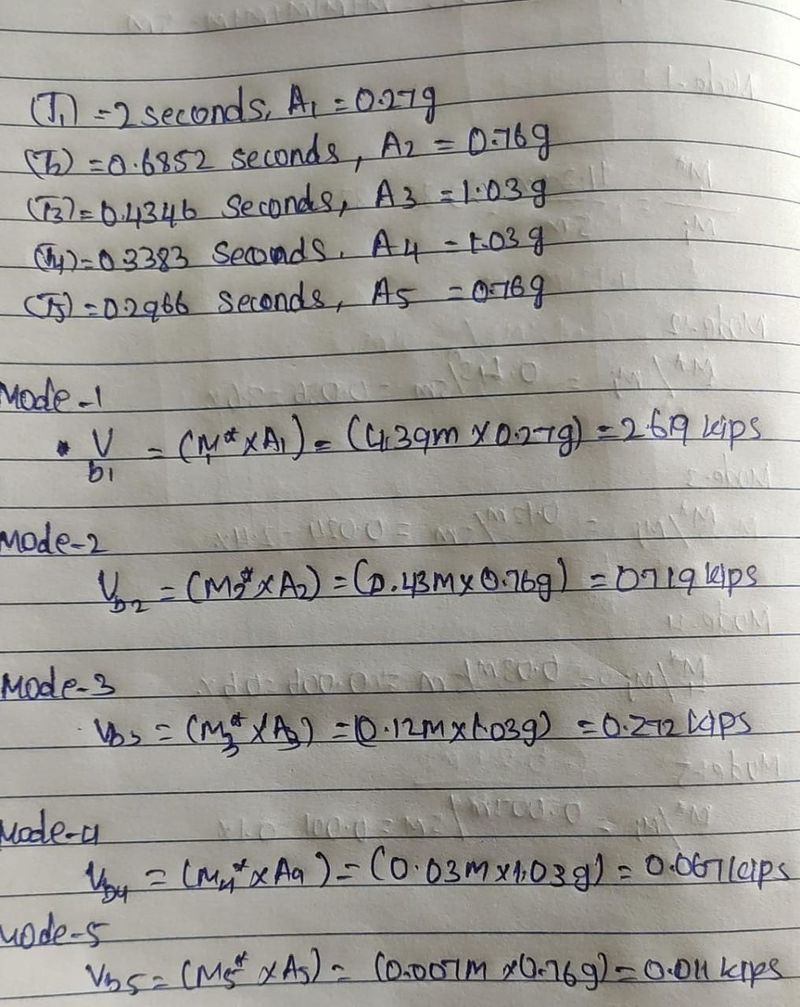 (T₁) = 2 seconds, A₁ = 0.27g
(T₂) = 0.6852 seconds, A2 = 0.76g
(T3) = 0.4346 seconds, A3 = 1.03g
(T4) = 0.3383 seconds, A4 = 1.03g
(T5) = 0.2966 seconds, A5 = 0.76g
Mode-1
• V_b1 = (M₁* × A₁) = (4.39m × 0.27g) = 2.619 kips
Mode-2
V_b2 = (M₂* × A₂) = (0.43m × 0.76g) = 0.719 kips
Mode-3
V_b3 = (M₃* × A₃) = (0.12m × 1.03g) = 0.272 kips
Mode-4
V_b4 = (M₄* × A4) = (0.03m × 1.03g) = 0.067 kips
Mode-5
V_b5 = (M5* × A5) = (0.007m × 0.76g) = 0.011 kips